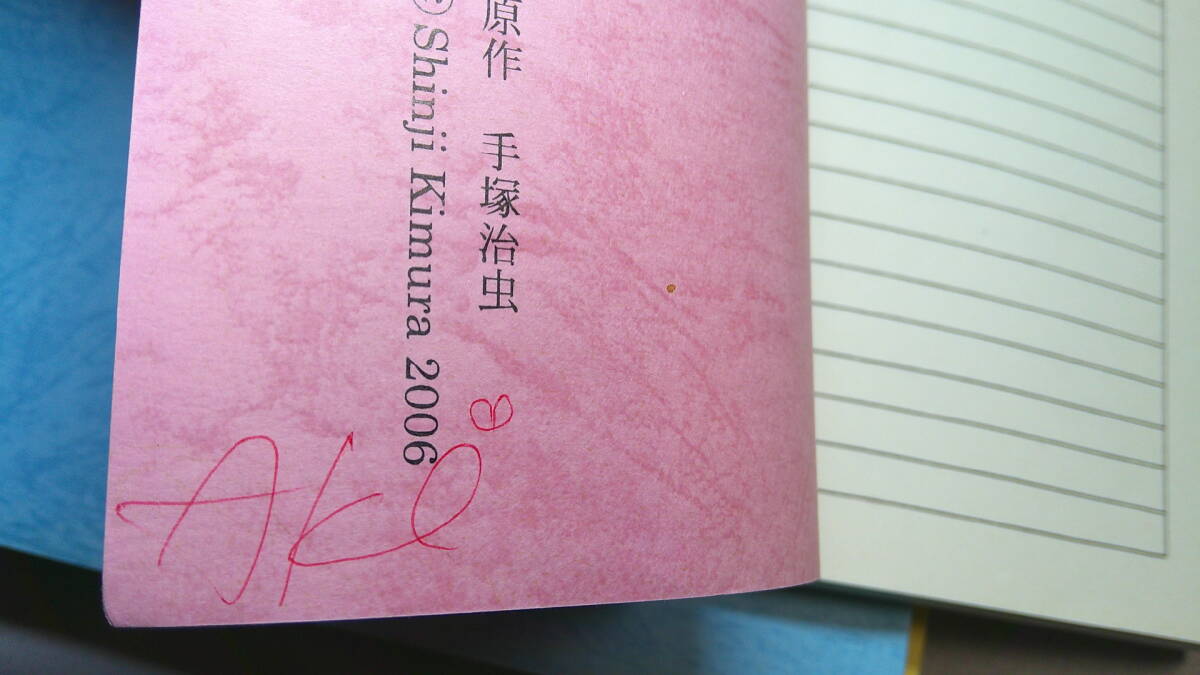 原作 手塚治虫
©Shinji Kimura 2006